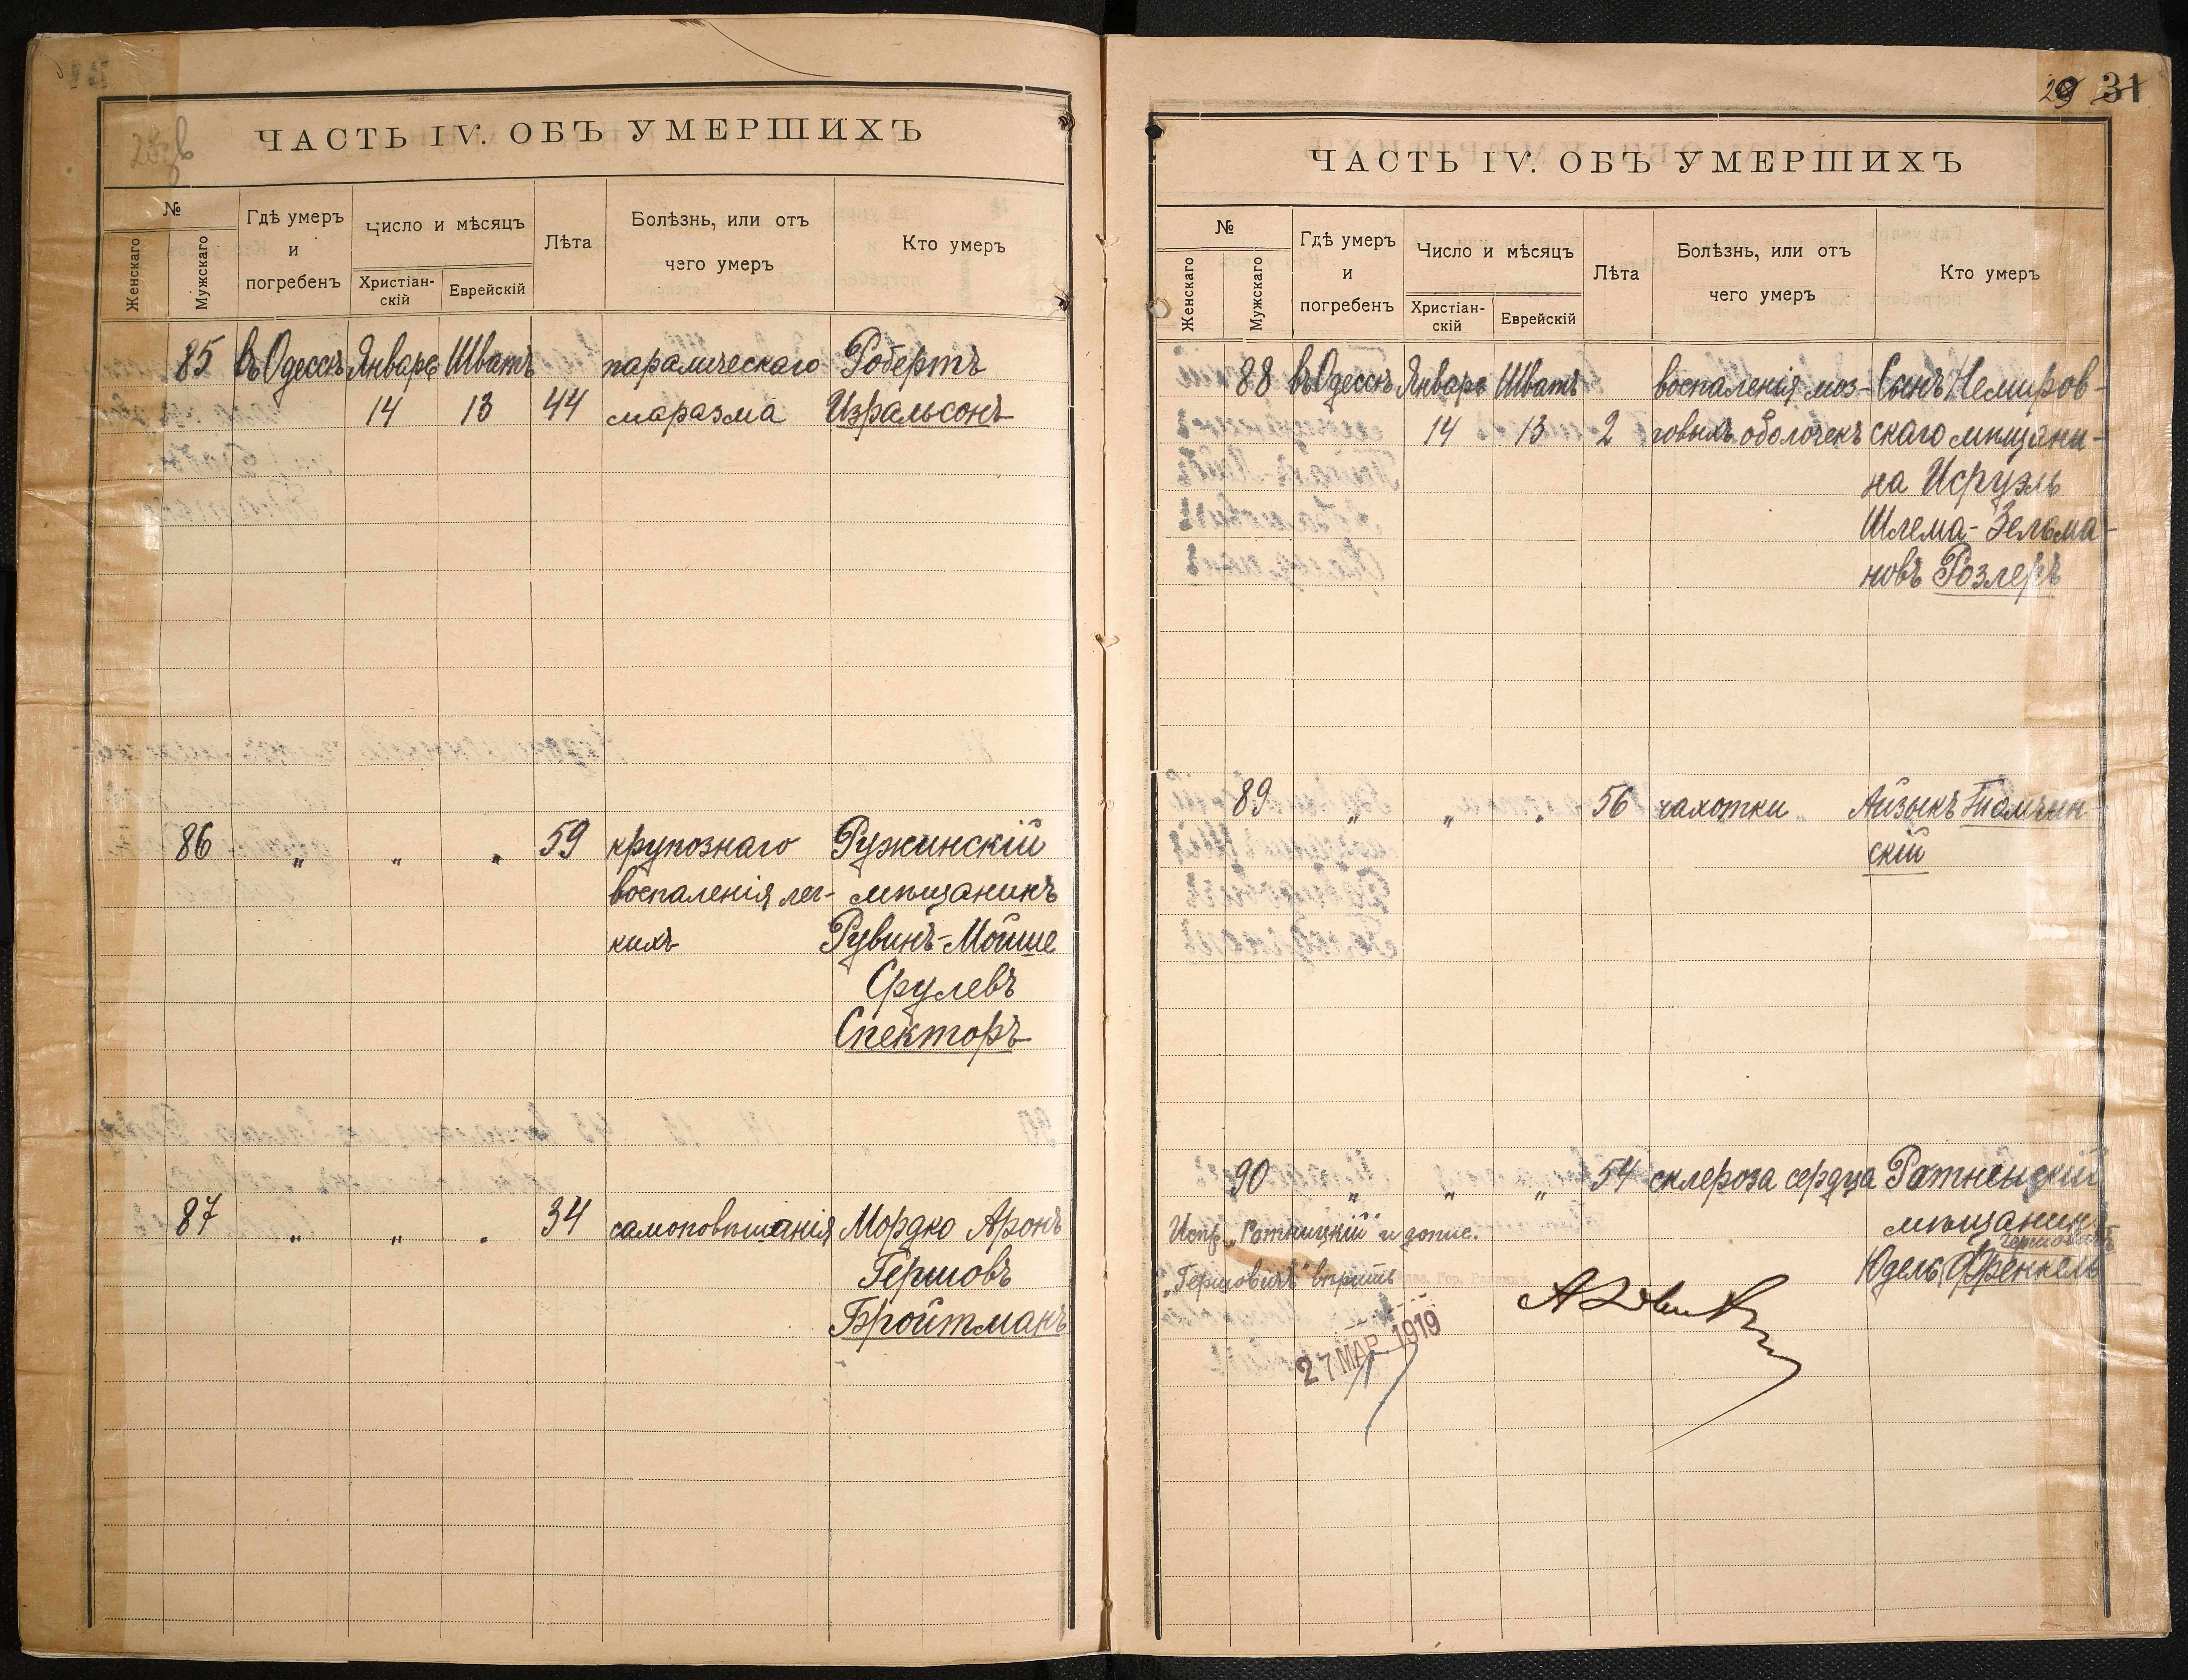 ЧАСТЬ IV. ОБЪ УМЕРШИХЪ
№
Женскаго
Мужскаго
Гдѣ умеръ
и
погребенъ
Число и мѣсяцъ
Христіан-
скій
Еврейскій
Лѣта
Болѣзнь, или отъ
чего умеръ
Кто умеръ
85 въ Одессѣ Январь Шватъ паралическаго Робертъ
14 13 44 маразма Изральсонъ
86 „ „ „ 59 крупознаго Ружинскій
воспаленія лег- мѣщанинъ
кихъ Рувинъ-Мойше
Срулевъ
Спекторъ
87 „ „ „ 34 самоповѣшанія Мордко Аронъ
Гершовъ
Бройтманъ
29 31
ЧАСТЬ IV. ОБЪ УМЕРШИХЪ
№
Женскаго
Мужскаго
Гдѣ умеръ
и
погребенъ
Число и мѣсяцъ
Христіан-
скій
Еврейскій
Лѣта
Болѣзнь, или отъ
чего умеръ
Кто умеръ
88 въ Одессѣ Январь Шватъ воспаленія моз- Сынъ Немиров-
14 13 2 говыхъ оболочекъ скаго мѣщани-
на Исруэль
Шлема-Зельма-
новъ Розлеръ
89 „ „ „ 56 чахотки Айзыкъ
скій
90 „ „ „ 54 склероза сердца Ратненскій
мѣщанинъ
Гершовичъ
Юдель Френкель
Испр. „Ратницкій“ и допис.
„Гершовичъ“ вѣрить
27 МАР. 1919